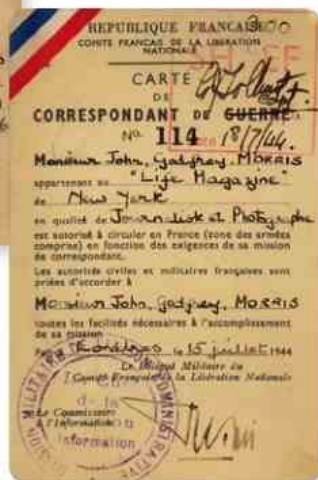 REPUBLIQUE FRANCAISE
COMITE FRANCAIS DE LA LIBERATION
NATIONALE
SHAEF
CARTE
DE
CORRESPONDANT DE GUERRE
No 114 18/7/44.
Monsieur John, Godfrey, MORRIS
appartenant au "Life Magazine"
de New York
en qualité de Journalist et Photographe
est autorisé à circuler en France (zone des armées
comprise) en fonction des exigences de sa mission
de correspondant.
Les autorités civiles et militaires françaises sont
priées d'accorder à
Monsieur John, Godfrey, MORRIS
toutes les facilités nécessaires à l'accomplissement
de sa mission
Londres le 15 juillet 1944
Le Délégué Militaire du
Comité Français de la Libération Nationale
Le Commissaire
à l'Information
MILITAIRE ADMINISTRATIVE
de la
Information